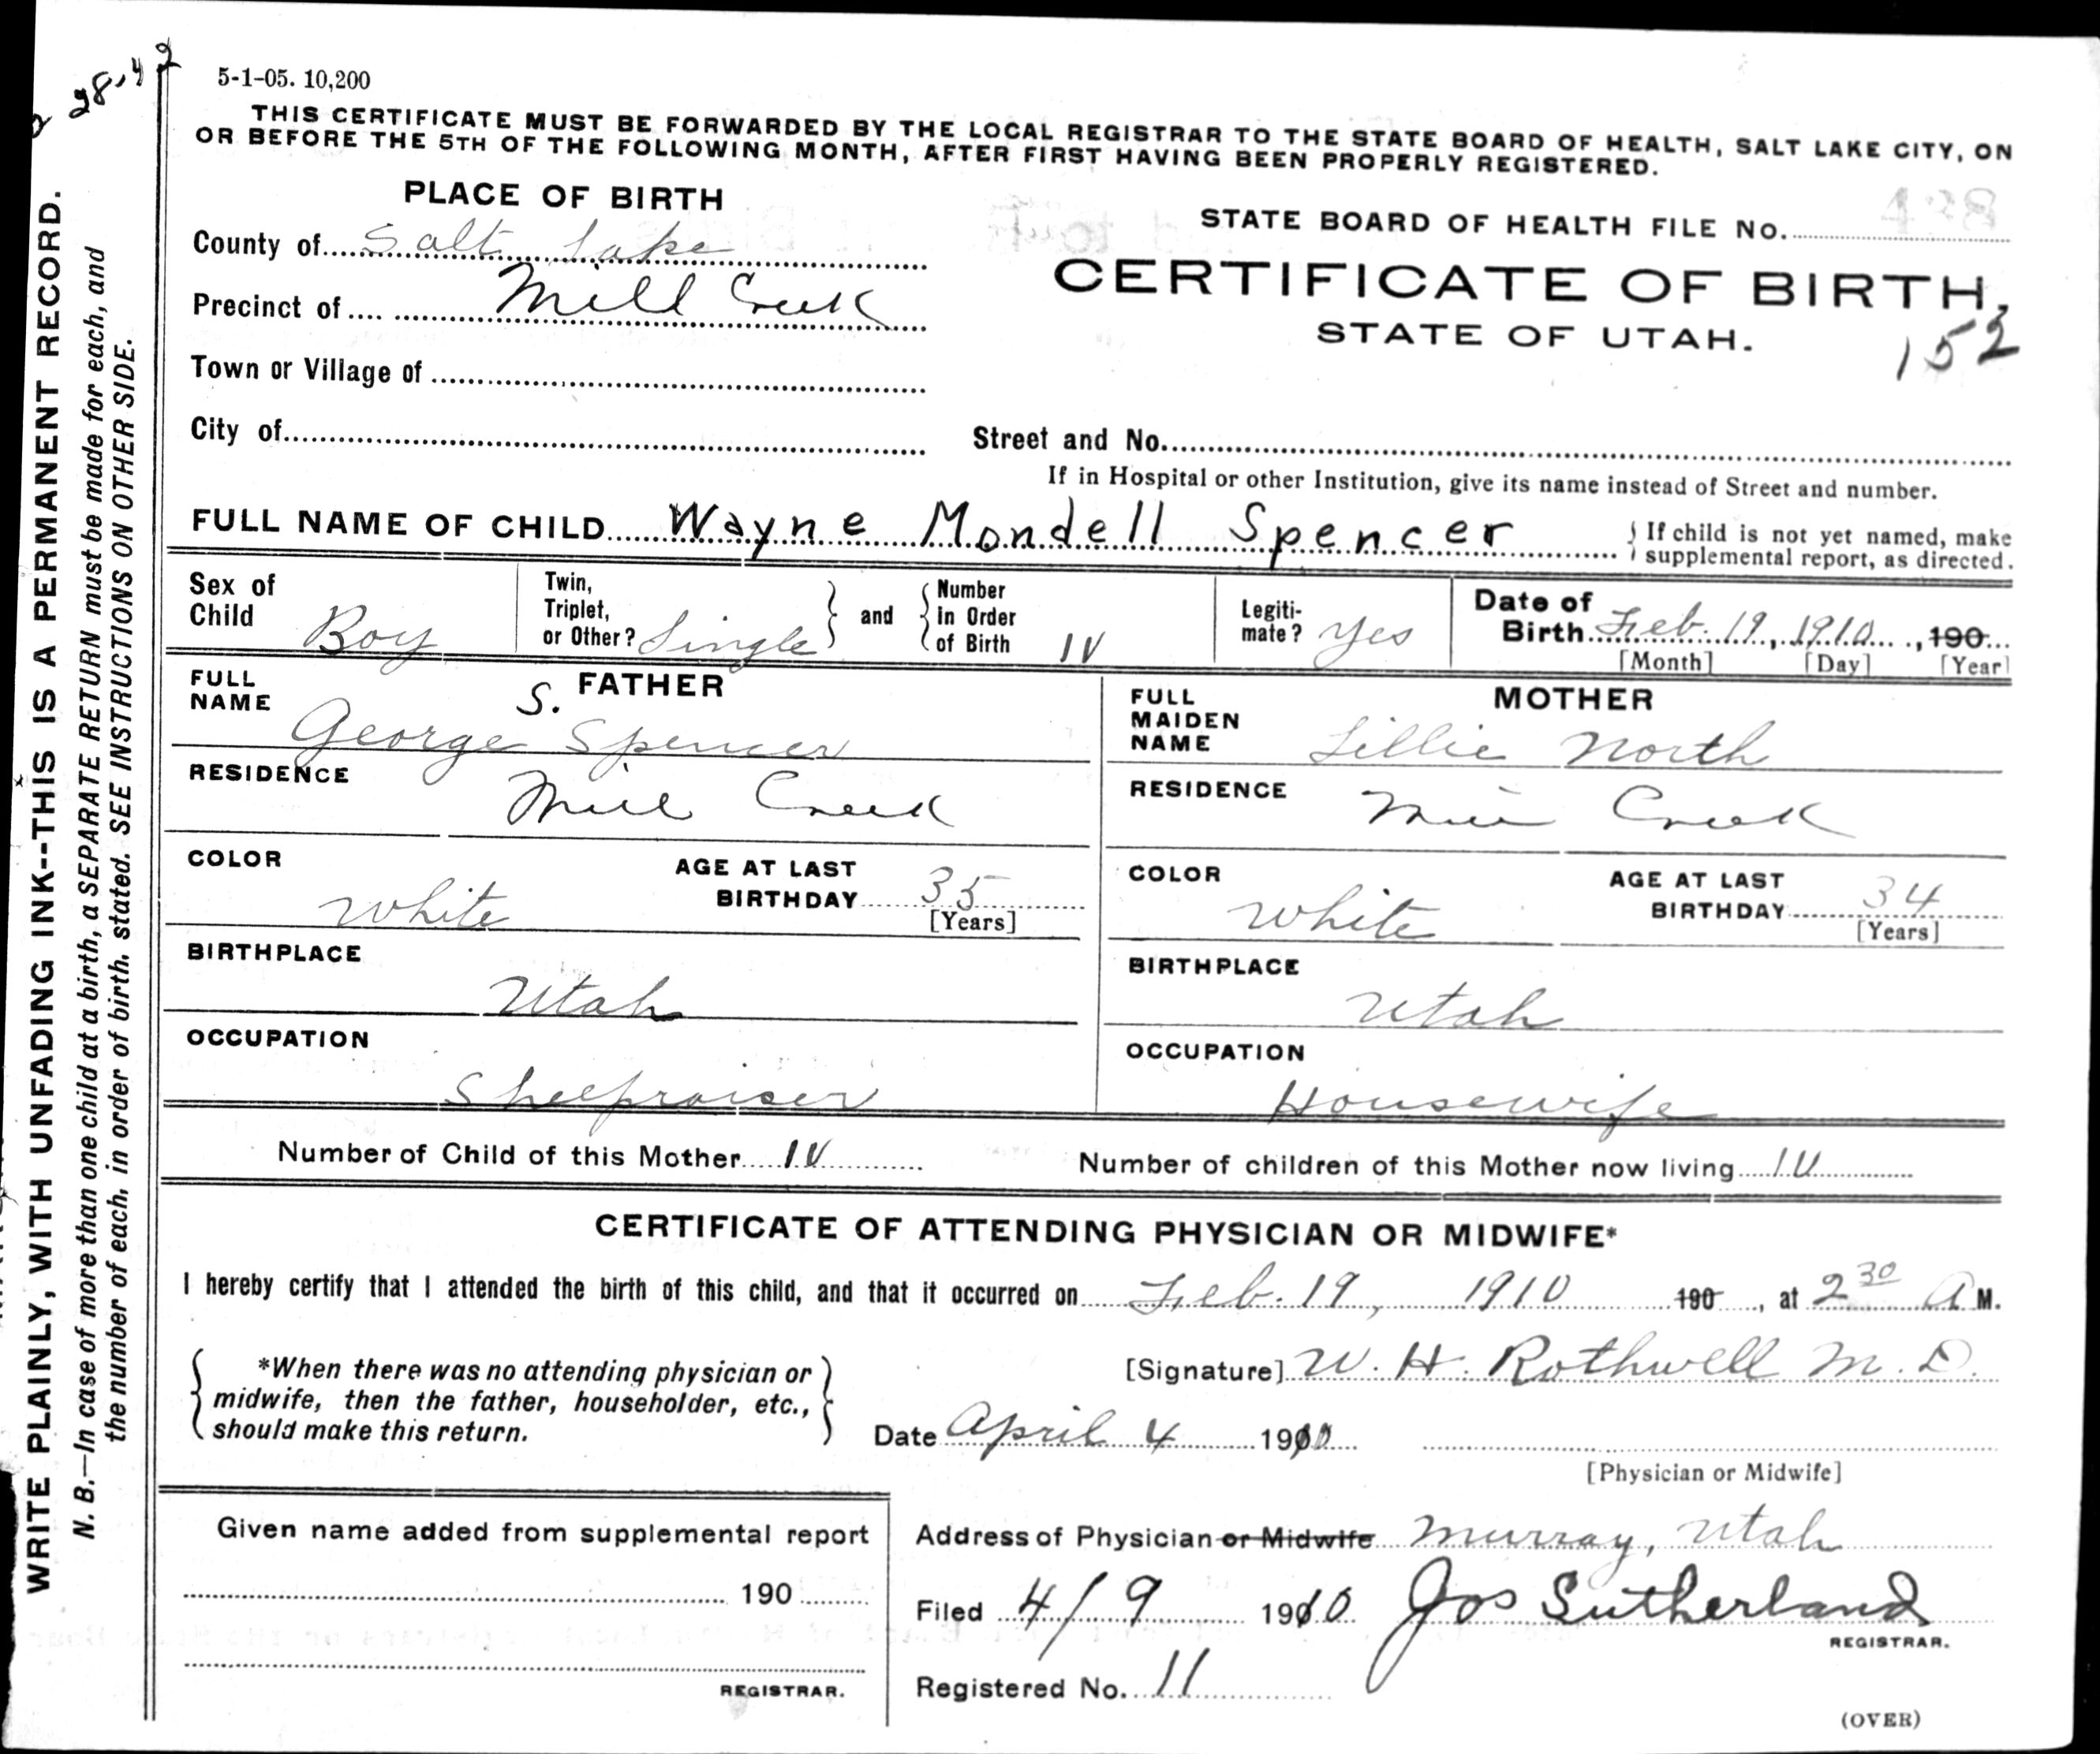 28.42
5-1-05. 10,200
THIS CERTIFICATE MUST BE FORWARDED BY THE LOCAL REGISTRAR TO THE STATE BOARD OF HEALTH, SALT LAKE CITY, ON
OR BEFORE THE 5TH OF THE FOLLOWING MONTH, AFTER FIRST HAVING BEEN PROPERLY REGISTERED.
PLACE OF BIRTH
STATE BOARD OF HEALTH FILE No. 428
County of Salt Lake
CERTIFICATE OF BIRTH,
Precinct of Mill Creek
STATE OF UTAH.
152
Town or Village of
City of
Street and No.
If in Hospital or other Institution, give its name instead of Street and number.
FULL NAME OF CHILD Wayne Mondell Spencer
If child is not yet named, make
supplemental report, as directed.
Sex of
Child Boy
Twin,
Triplet,
or Other? Single
and
Number
in Order
of Birth IV
Legiti-
mate? Yes
Date of
Birth Feb. 19, 1910, 190
[Month] [Day] [Year]
FATHER
FULL
NAME George S. Spencer
RESIDENCE Mill Creek
COLOR White
AGE AT LAST
BIRTHDAY 35
[Years]
BIRTHPLACE Utah
OCCUPATION Sheepraiser
MOTHER
FULL
MAIDEN
NAME Lillie North
RESIDENCE Mill Creek
COLOR White
AGE AT LAST
BIRTHDAY 34
[Years]
BIRTHPLACE Utah
OCCUPATION Housewife
Number of Child of this Mother IV
Number of children of this Mother now living IV
CERTIFICATE OF ATTENDING PHYSICIAN OR MIDWIFE*
I hereby certify that I attended the birth of this child, and that it occurred on Feb. 19, 1910 190, at 2 30 A M.
*When there was no attending physician or
midwife, then the father, householder, etc.,
should make this return.
[Signature] W. H. Rothwell M. D.
Date April 4 1910
[Physician or Midwife]
Given name added from supplemental report
190
REGISTRAR.
Address of Physician or Midwife Murray, Utah
Filed 4/9 1910 Jos Sutherland
REGISTRAR.
Registered No. 11
(OVER)
WRITE PLAINLY, WITH UNFADING INK--THIS IS A PERMANENT RECORD.
N. B.—In case of more than one child at a birth, a SEPARATE RETURN must be made for each, and
the number of each, in order of birth, stated. SEE INSTRUCTIONS ON OTHER SIDE.